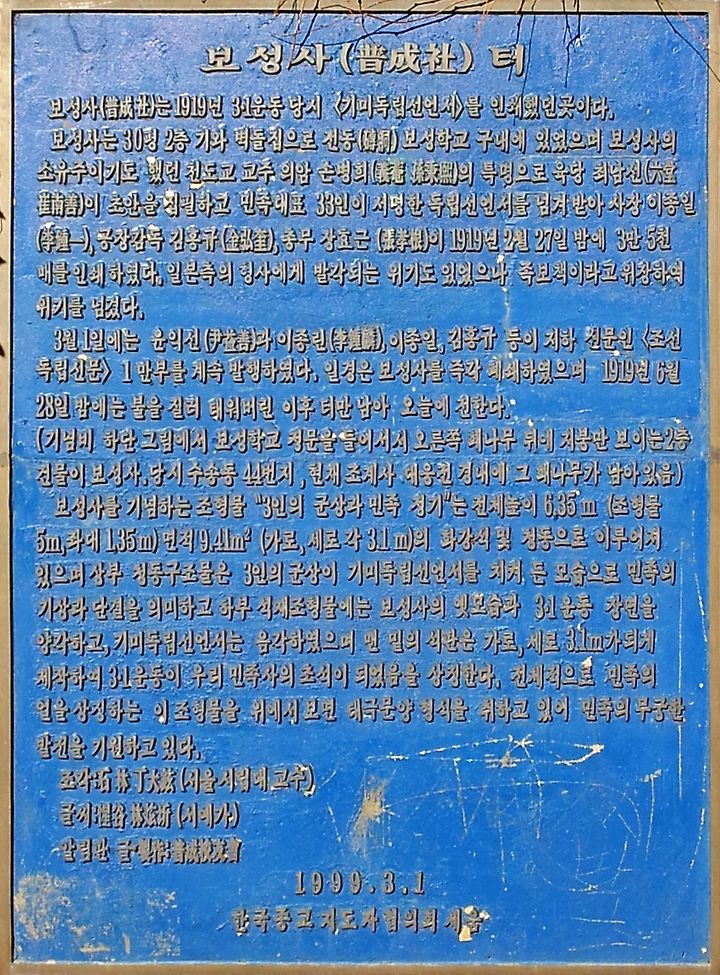 보성사(普成社) 터
보성사(普成社)는 1919년 3·1운동 당시 〈기미독립선언서〉를 인쇄했던곳이다.
보성사는 30평 2층 기와 벽돌집으로 전동(磚洞) 보성학교 구내에 있었으며 보성사의
소유주이기도 했던 천도교 교주 의암 손병희(義菴 孫秉熙)의 특명으로 육당 최남선(六堂
崔南善)이 초안을 집필하고 민족대표 33인이 서명한 독립선언서를 넘겨받아 사장 이종일
(李鍾一), 공장감독 김홍규(金弘奎), 총무 장효근(張孝根)이 1919년 2월 27일 밤에 3만 5천
매를 인쇄하였다. 일본측의 형사에게 발각되는 위기도 있었으나 족보책이라고 위장하여
위기를 넘겼다.
3월 1일에는 윤익선(尹益善)과 이종린(李鍾麟), 이종일, 김홍규 등이 지하 신문인 〈조선
독립신문〉 1만부를 계속 발행하였다. 일경은 보성사를 즉각 폐쇄하였으며 1919년 6월
28일 밤에는 불을 질러 태워버린 이후 터만 남아 오늘에 전한다.
(기념비 하단 그림에서 보성학교 정문을 들어서서 오른쪽 회나무 뒤에 지붕만 보이는 2층
건물이 보성사. 당시 수송동 44번지, 현재 조계사 대웅전 경내에 그 회나무가 남아있음)
보성사를 기념하는 조형물 "3인의 군상과 민족 정기"는 전체높이 6.35m (조형물
5m, 좌대 1.35m) 면적 9.41m² (가로, 세로 각 3.1m)의 화강석 및 청동으로 이루어져
있으며 상부 청동구조물은 3인의 군상이 기미독립선언서를 치켜 든 모습으로 민족의
기상과 단결을 의미하고 하부 석재조형물에는 보성사의 옛모습과 3·1운동 장면을
양각하고, 기미독립선언서는 음각하였으며 맨 밑의 석판은 가로, 세로 3.1m가 되게
제작하여 3·1운동이 우리 민족사의 초석이 되었음을 상징한다. 전체적으로 민족의
얼을 상징하는 이 조형물을 위에서 보면 태극문양 형식을 취하고 있어 민족의 무궁한
발전을 기원하고 있다.
조각: 石林 丁大鉉 (서울시립대 교수)
글씨: 谷 林炫圻 (서예가)
알림판 글·製作: 普成校友會
1999.3.1
한국종교지도자협의회 세움